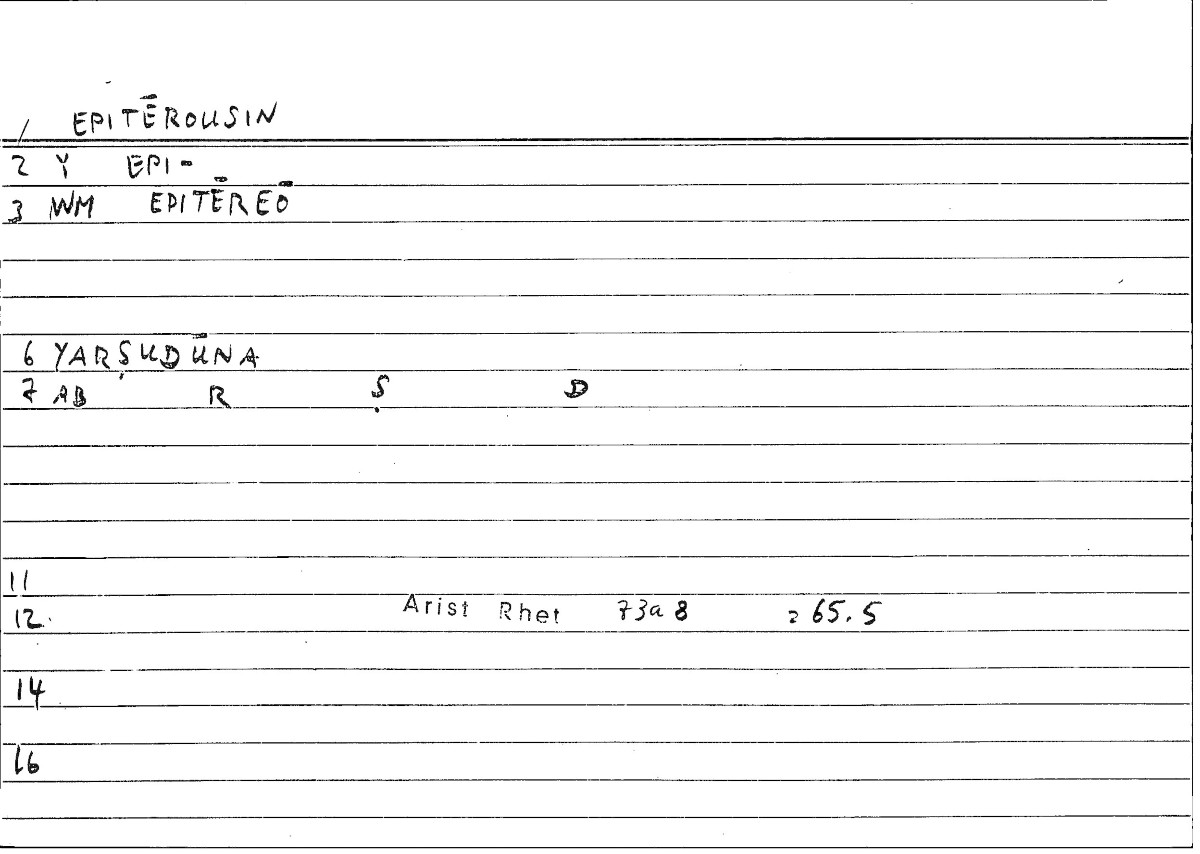 1 EPITĒROUSIN
2 Y EPI-
3 WM EPITĒREŌ
6 YARṢUDŪNA
7 AB R Ṣ D
11
12. Arist Rhet 73a8 = 65.5
14
16